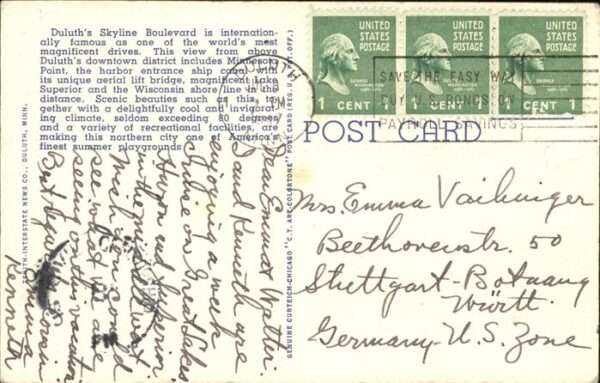 Duluth's Skyline Boulevard is internation-
ally famous as one of the world's most
magnificent drives. This view from above
Duluth's downtown district includes Minnesota
Point, the harbor entrance ship canal with
its unique aerial lift bridge, magnificent Lake
Superior and the Wisconsin shore line in the
distance. Scenic beauties such as this, to-
gether with a delightfully cool and invigorat-
ing climate, seldom exceeding 80 degrees
and a variety of recreational facilities, are
making this northern city one of America's
finest summer playgrounds.
UNITED STATES POSTAGE
1 CENT 1
UNITED STATES POSTAGE
1 CENT 1
UNITED STATES POSTAGE
1 CENT 1
DULUTH
SAVE THE EASY WAY
BUY U.S. BONDS ON
PAYROLL SAVINGS
POST CARD
Dear Emma & Walter:
D and Kenneth are
enjoying a week
cruise on Great Lakes
Huron and Superior
in the
Wish you could
see what we are
seeing on this vacation.
Best regards
Emma
Kenneth
Mrs. Emma Vaihinger
Beethovenstr. 50
Stuttgart-Botnang
Württ.
Germany-U.S. Zone
INTERSTATE NEWS CO., DULUTH, MINN.
GENUINE CURTEICH-CHICAGO "C.T. ART-COLORTONE" POST CARD (REG. U.S. PAT. OFF.)